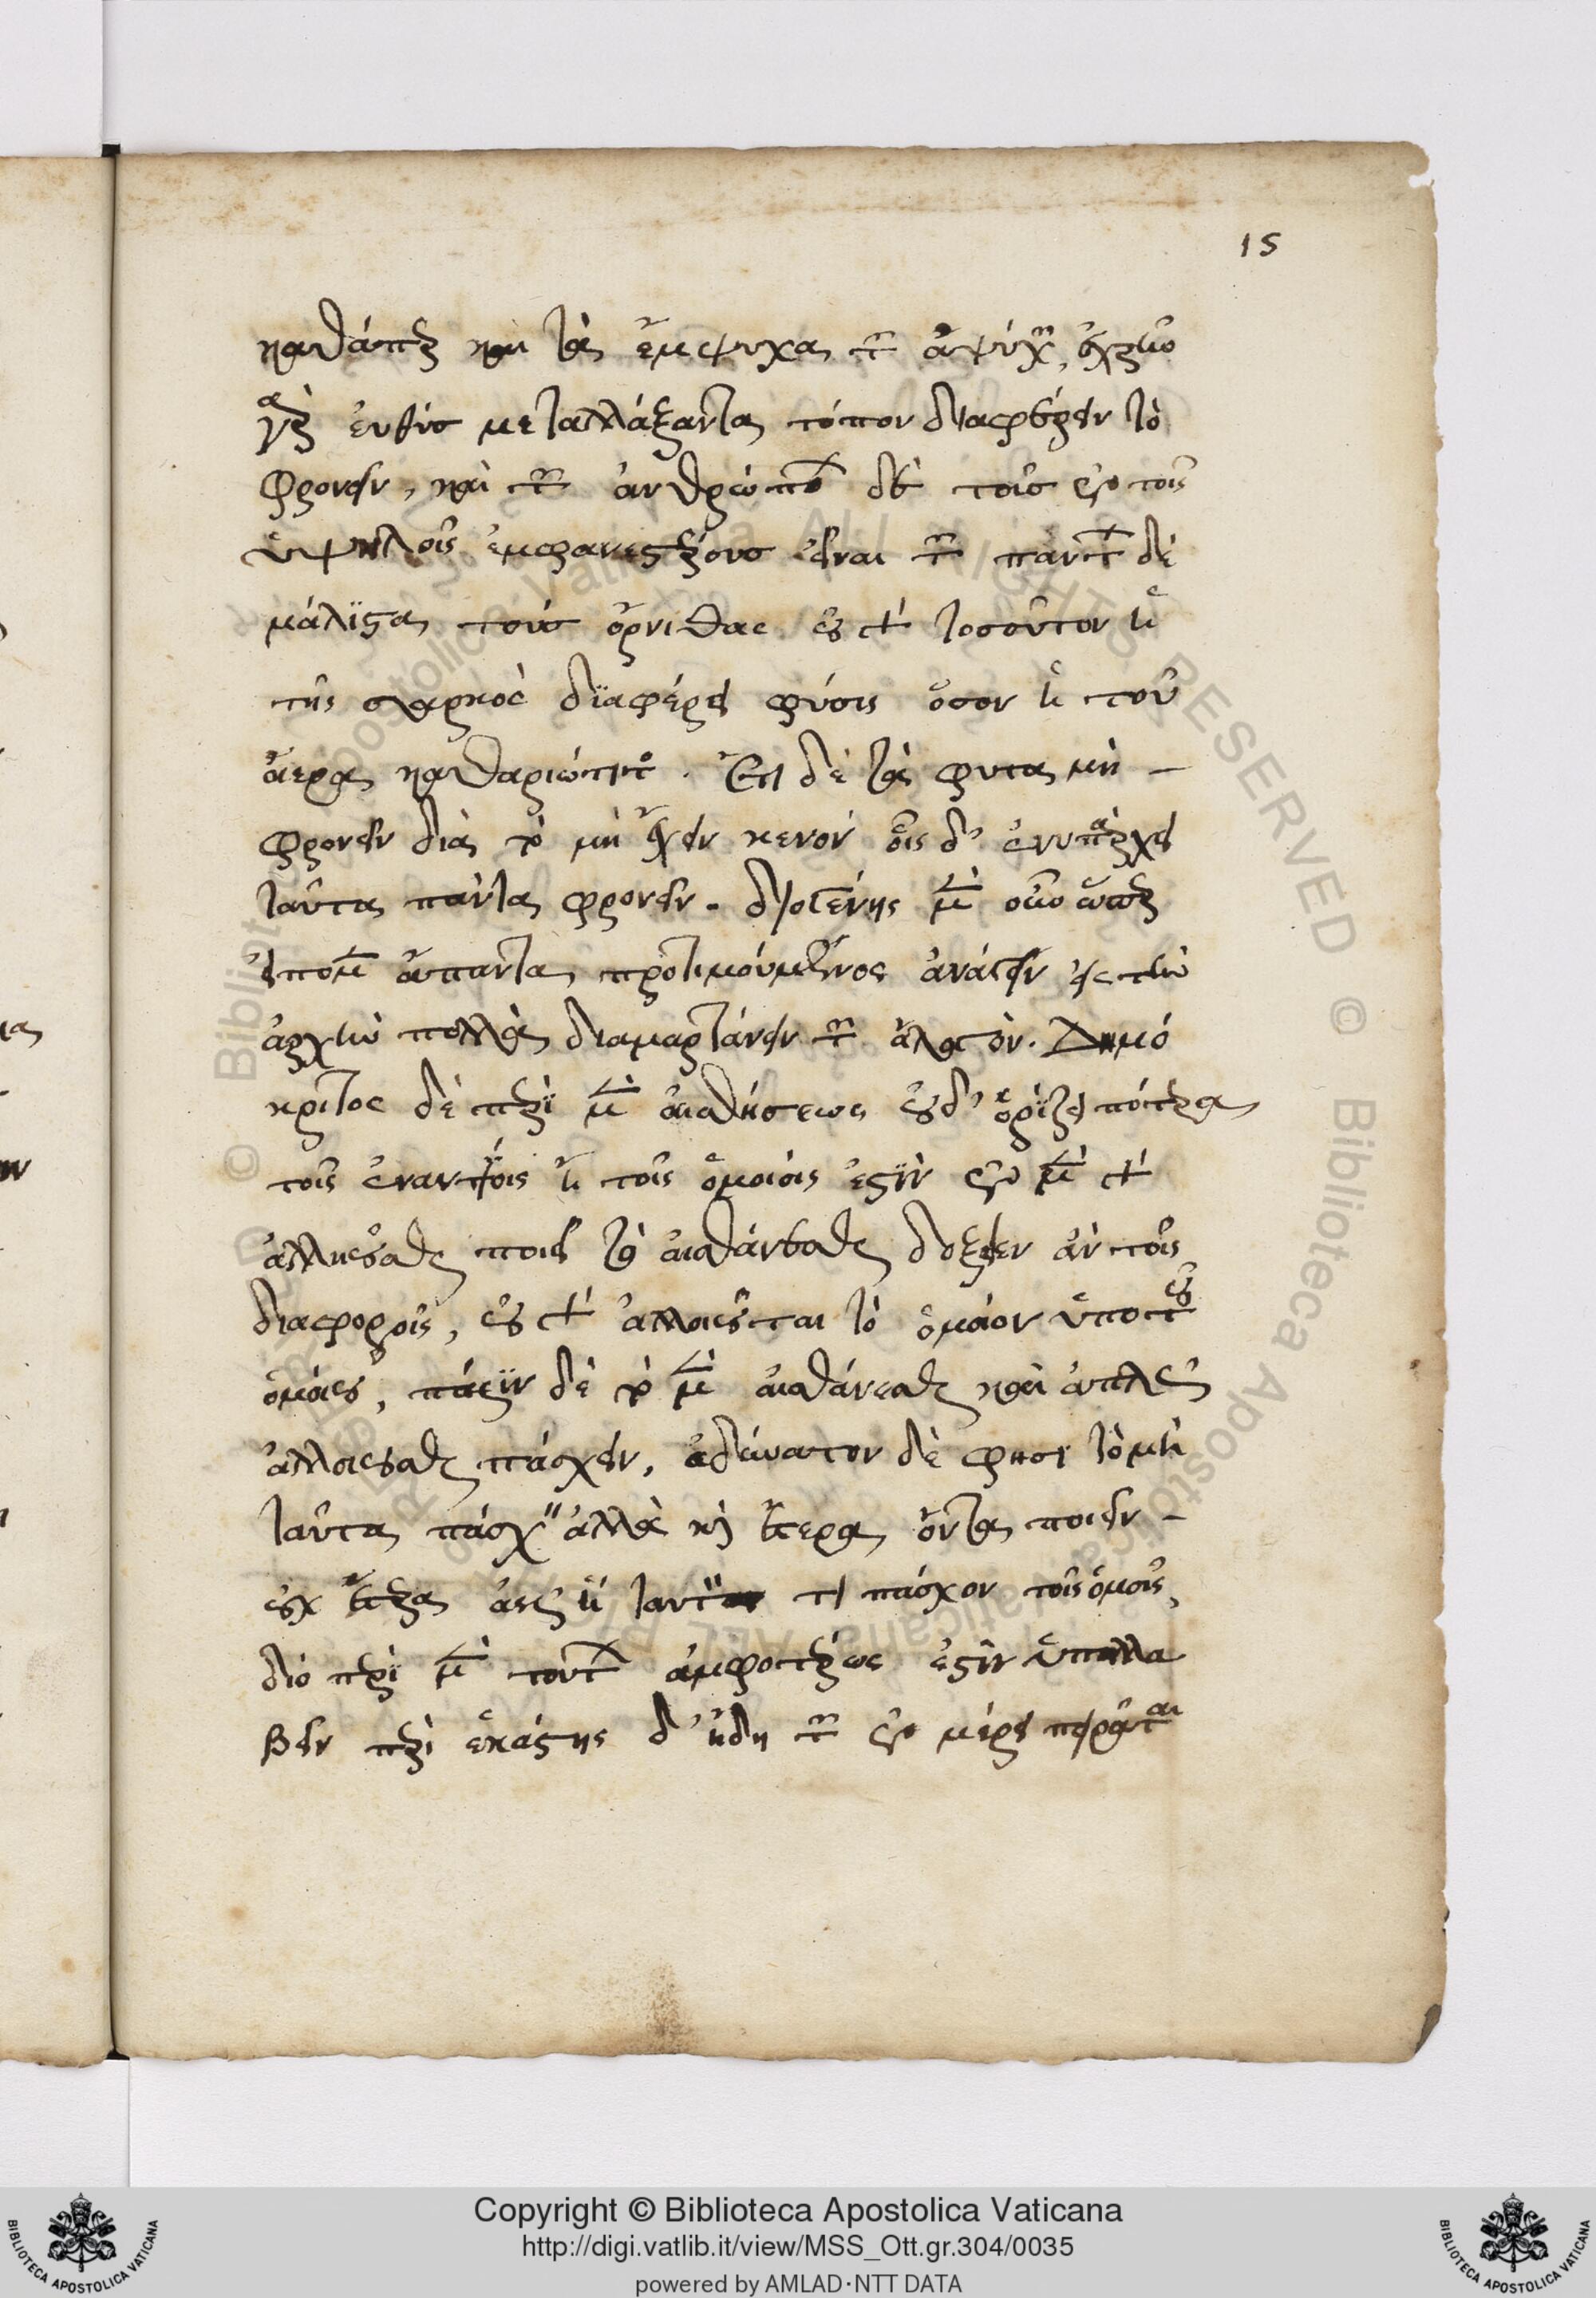 15
καθάπερ καὶ τὰ ἔμψυχα τῶν ἀψύχων, ἐχρῆν
γὰρ εὐθὺς μεταλλάξαντα τόπον διαφέρειν τὸ
φρονεῖν, καὶ τῶν ἀνθρώπων δὲ τοὺς ἐν τοῖς
ὑψηλοῖς ἐμφανεστέρους εἶναι τῶν πάντων δὲ
μάλιστα τοὺς ὄρνιθας. οὐ γὰρ τοσοῦτον ἡ
τῆς σαρκὸς διαφέρει φύσις ὅσον ἡ τοῦ
ἀέρα καθαριώτητος. Ἔτι δὲ τὰ φυτὰ μὴ
φρονεῖν διὰ τὸ μὴ ἔχειν κενόν οἷς δ' ἐνυπάρχει
ταῦτα πάντα φρονεῖν. Διογένης μὲν οὖν ὥσπερ
εἴπομεν ἅπαντα προθυμούμενος ἀνάγειν εἰς τὴν
ἀρχὴν πολλὰ διαμαρτάνειν τῶν. Δημό
κριτος δὲ περὶ μὲν αἰσθήσεως οὐ δ' ὁρίζει πότερα
τοῖς ἐναντίοις ἢ τοῖς ὁμοίοις ἐστὶν εἰ μὲν γὰρ
ἀλλοιοῦσθαι ποιεῖ τὸ αἰσθάνεσθαι δόξειεν ἂν τοῖς
διαφόροις, οὐ γὰρ ἀλλοιοῦται τὸ ὅμοιον ὑπὸ τοῦ
ὁμοίου, πάλιν δὲ τὸ μὲν αἰσθάνεσθαι καὶ ἁπλῶς
ἀλλοιοῦσθαι πάσχειν, ἀδύνατον δὲ φησι τὸ μὴ
ταῦτα πάσχειν ἀλλὰ κἂν ἕτερα ὄντα ποιεῖν
οὐχ ἕτερα ἀλλ' ᾗ ταυτόν τι πάσχον τοῖς ὁμοίοις,
διὸ περὶ μὲν τούτων ἀμφοτέρως ἐστὶν ὑπολα
βεῖν περὶ ἑκάστης δ' ἤδη τῶν ἐν μέρει πειρᾶται
Copyright © Biblioteca Apostolica Vaticana
http://digi.vatlib.it/view/MSS_Ott.gr.304/0035
powered by AMLAD·NTT DATA